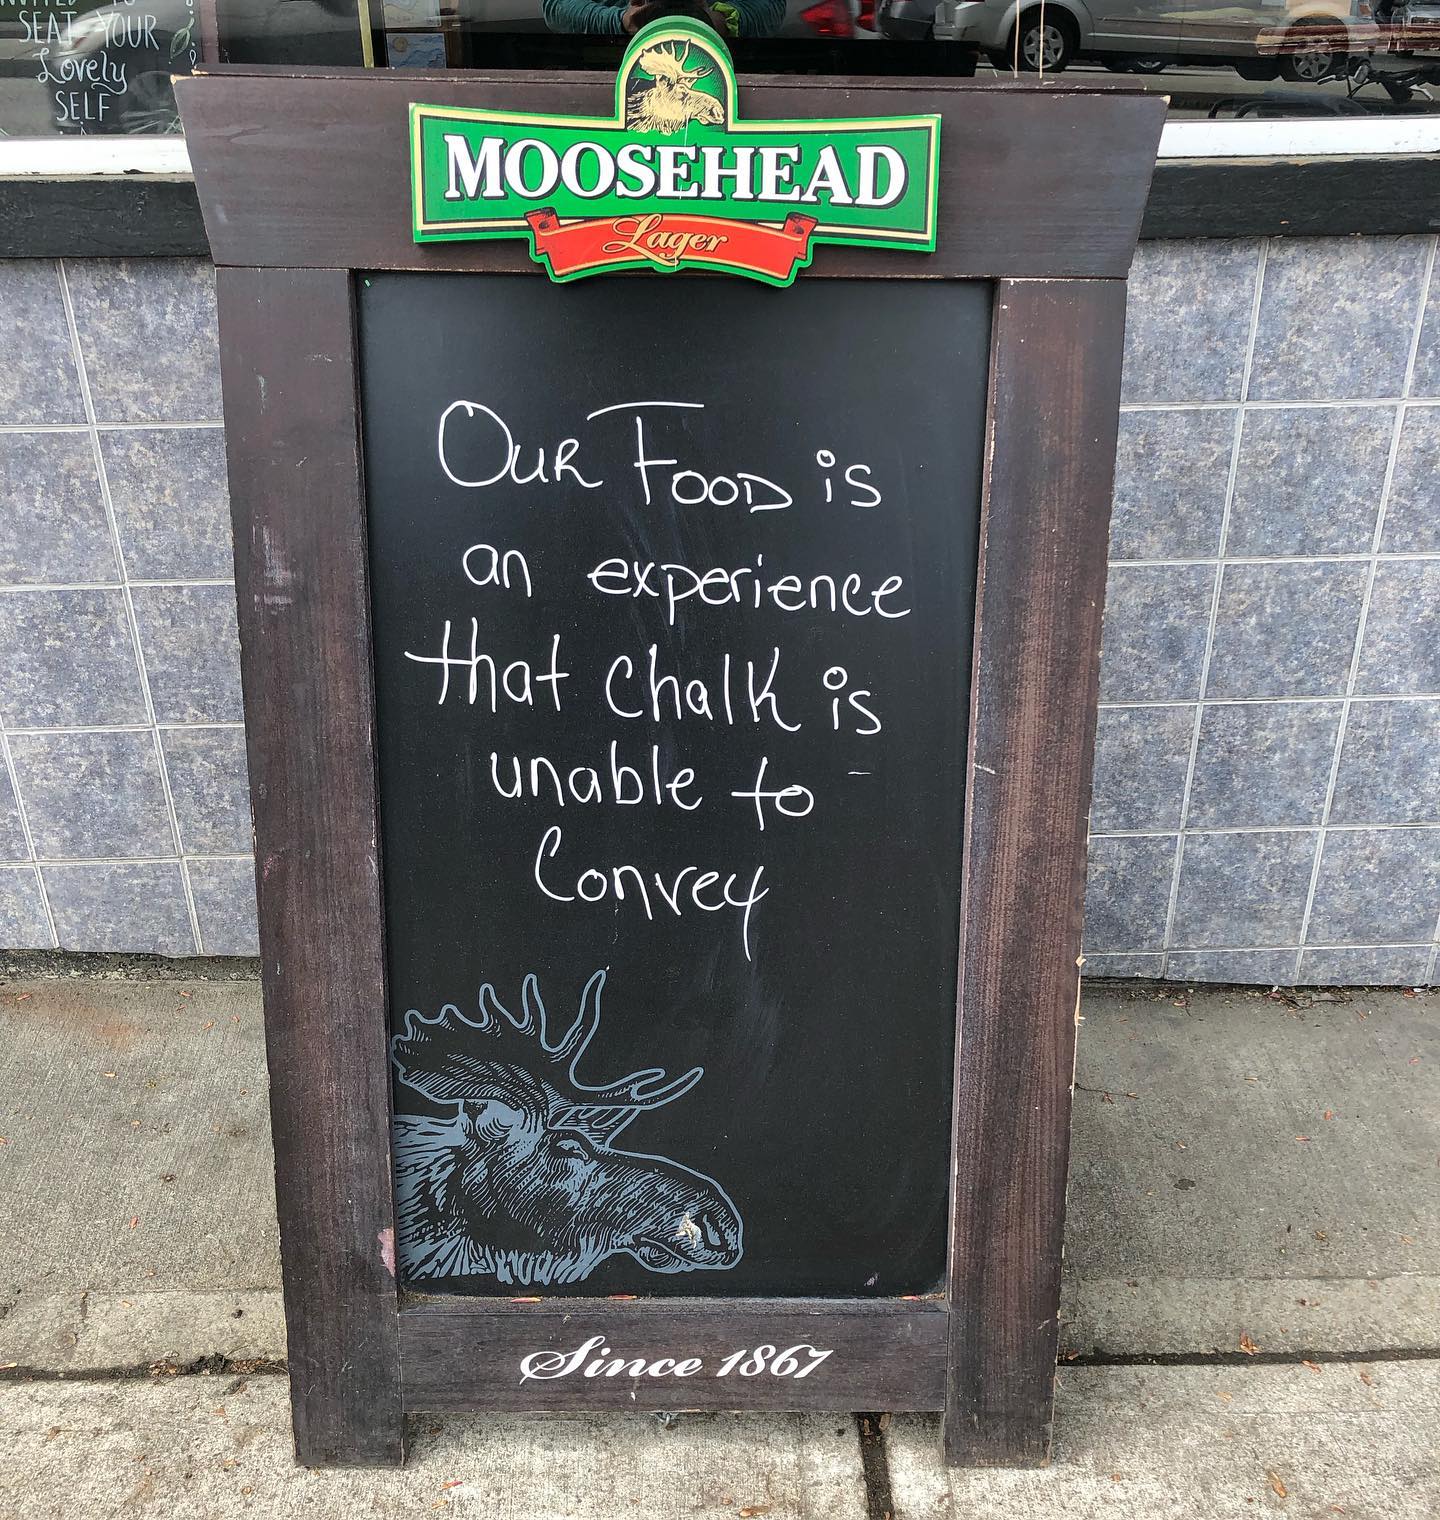 SEAT YOUR
Lovely
SELF
MOOSEHEAD
Lager
OUR FOOD is
an experience
that Chalk is
unable to
Convey
Since 1867